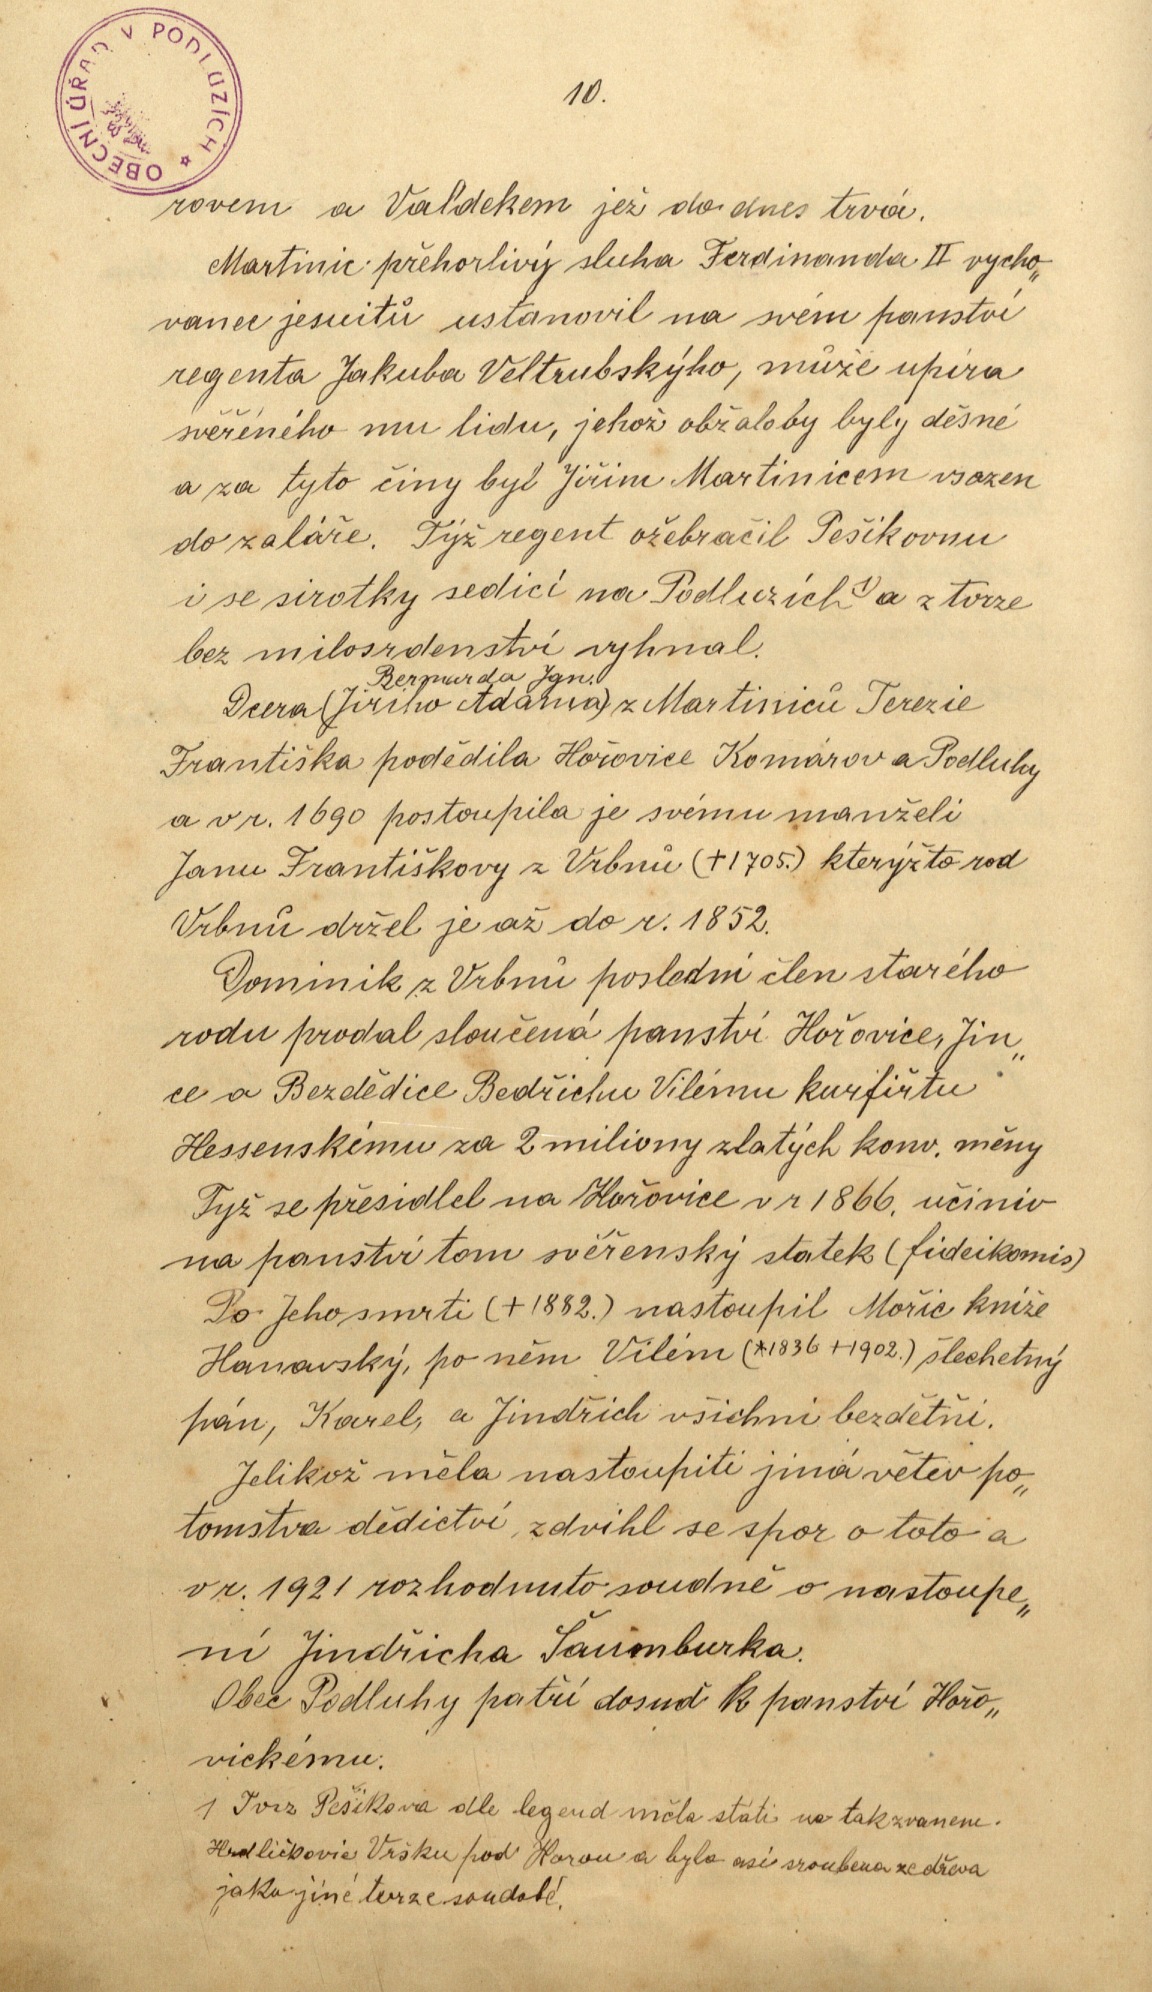 OBECNÍ ÚŘAD V PODLUZÍCH *
10.
rovem a Valdekem jež do dnes trvá.
Martinic přehorlivý sluha Ferdinanda II vycho„
vanec jesuitů ustanovil na svém panství
regenta Jakuba Veltrubskýho, může upíra
svěřeného mu lidu, jehož obžaloby byly děsné
a za tyto činy byl Jiřím Martinicem vsazen
do zaláře. Týž regent ožebračil Pešikovnu
i se sirotky sedící na Podluzích 1) a z tvrze
bez milosrdenství vyhnal.
Bernarda Ign.
Dcera (Jiřího Adama) z Martiniců Terezie
Františka podědila Hořovice Komárov a Podluhy
a v r. 1690 postoupila je svému manželi
Janu Františkovy z Vrbnů (†1705.) kterýžto rod
Vrbnů držel je až do r. 1852.
Dominik z Vrbnů poslední člen starého
rodu prodal sloučená panství Hořovice, Jin„
ce a Bezdědice Bedřichu Vilému kurfiřtu
Hessenskému za 2 miliony zlatých konv. měny
Týž se přesídlel na Hořovice v r 1866, učiniv
na panství tom svěřenský statek (fideikomis)
Po Jeho smrti (+1882.) nastoupil Mořic kníže
Hanavský, po něm Vilém (*1836 +1902.) šlechetný
pán, Karel, a Jindřich všichni bezdětní.
Jelikož měla nastoupiti jiná větev po„
tomstva dědictví, zdvihl se spor o toto a
v r. 1921 rozhodnuto soudně o nastoupe„
ní Jindřicha Šaumburka.
Obec Podluhy patří dosud k panství Hořo„
vickému.
1 Tvrz Pešíkova dle legend měla státi na takzvanem
Hrdličkovic Vršku pod Horou a byla asi sroubena ze dřeva
jako jiné tvrze soudobé.